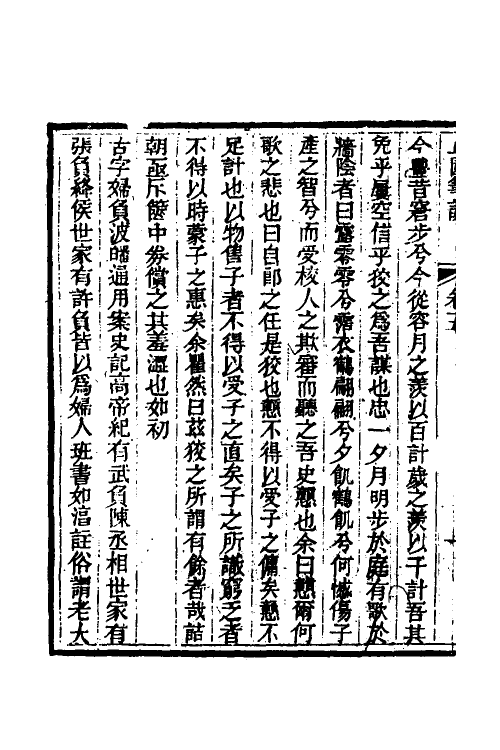 今豐昔窘步兮今從容月之羨以百計歲之羨以千計吾其
免乎屢空信乎狡之爲吾謀也忠一夕月明步於庭有歌於
牆陰者曰露零零兮霑衣鶴翩翩兮夕飢鶴飢兮何憾傷子
產之智兮而受校人之欺審而聽之吾史戇也余曰戇爾何
歌之悲也曰自郎之任是狡也戇不得以愛子之傭矣戇不
足計也以物售子者不得以受子之直矣子之所識窮乏者
不得以時蒙子之惠矣余瞿然曰茲狡之所謂有餘者哉詰
朝亟斥篋中券償之其羞澀也如初
古字婦負波皤通用案史記高帝紀有武負陳丞相世家有
張負絳侯世家有許負皆以爲婦人班書如淳註俗謂老大